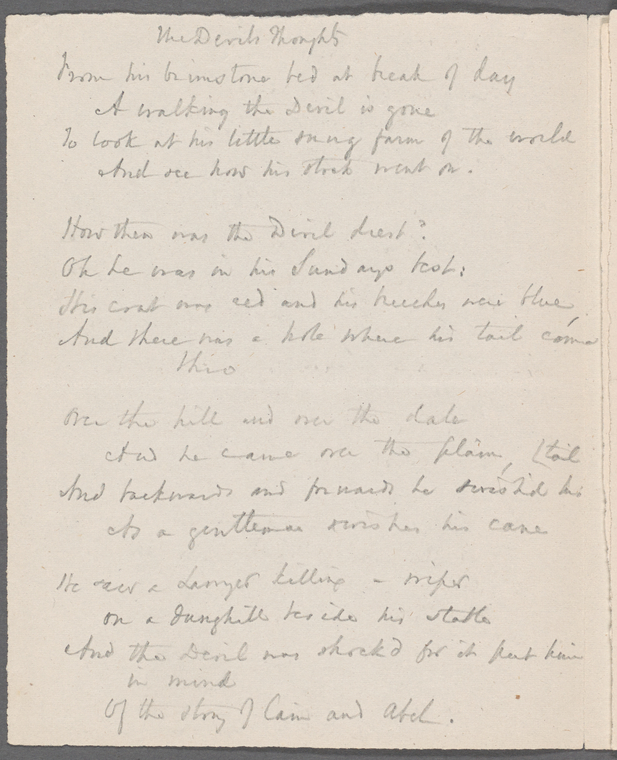 The Devils Thoughts
From his brimstone bed at break of day
A walking the Devil is gone
To look at his little snug farm of the world
And see how his stock went on.
How then was the Devil drest?
Oh he was in his Sundays best:
His coat was red and his breeches were blue
And there was a hole where his tail came
thro
Over the hill and over the dale
And he came over the plain,
[tail
And backwards and forwards he swish'd his
As a gentleman swishes his cane
He saw a Lawyer killing a viper
on a dunghill beside his stable
And the Devil was shock'd for it put him
in mind
Of the story of Cain and Abel.